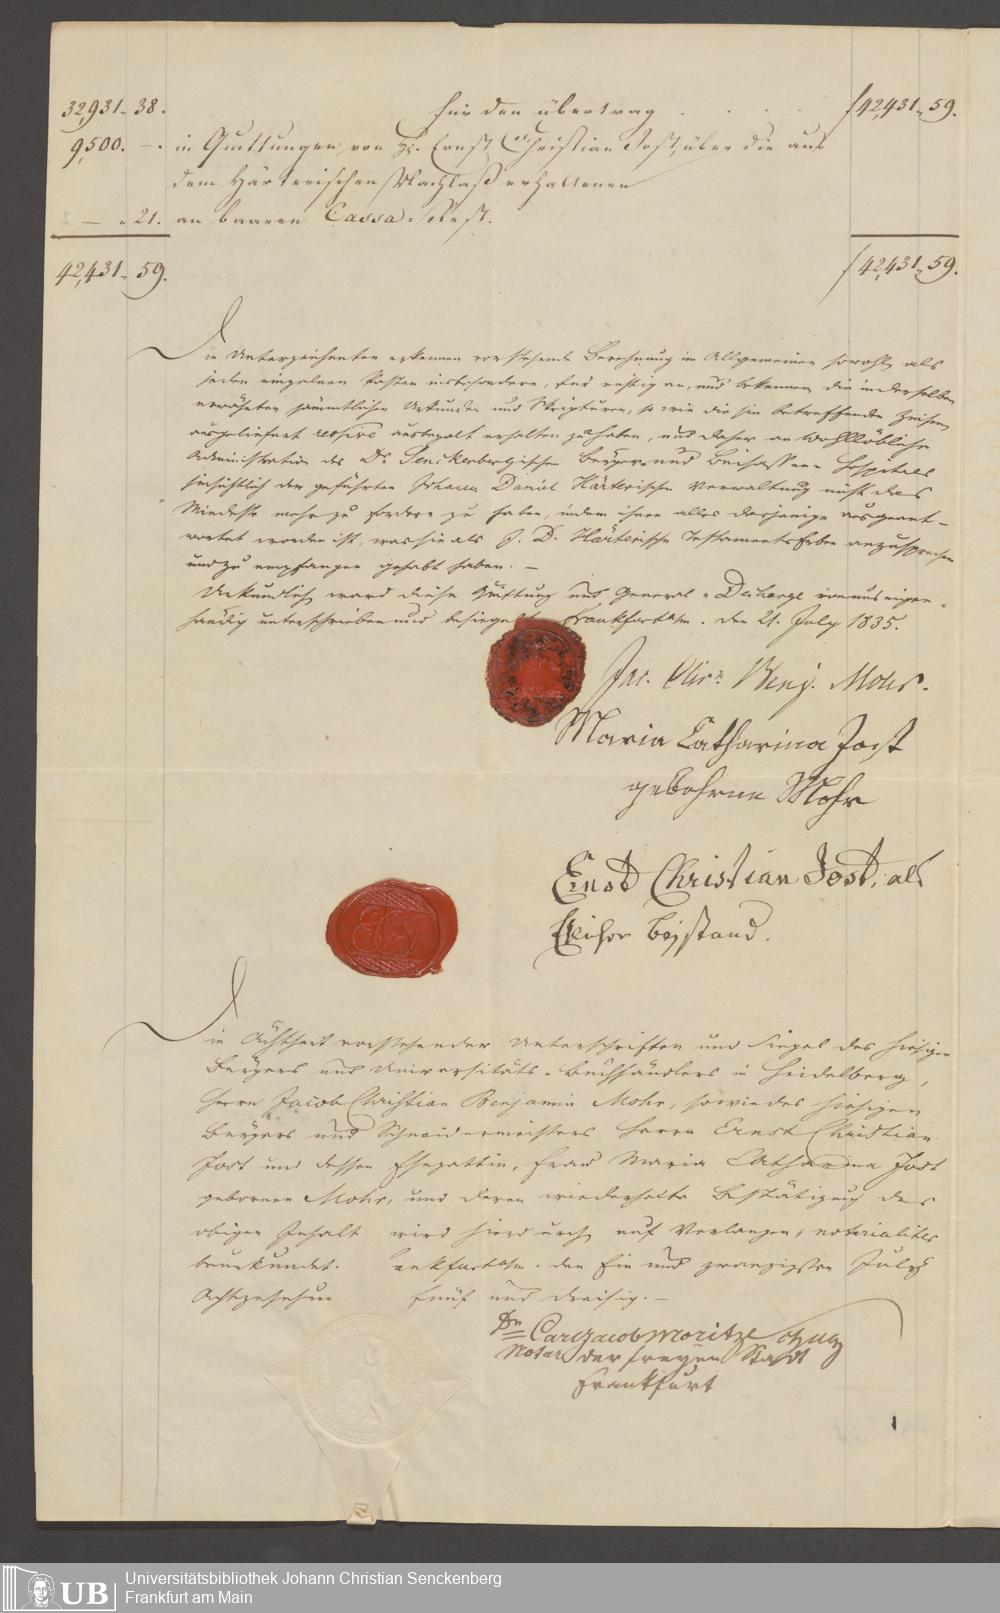 32,931. 38. für den Übertrag . . . f 42,431. 59.
9,500. — . in Quittungen von H. Ernst Christian Jost, über die aus
dem Härterischen Nachlaß erhaltenen
— . 21. an baaren Cassa-Rest.
42,431. 59. f 42,431. 59.
Die Unterzeichneten erkennen vorstehende Berechnung im Allgemeinen sowohl, als
jeden einzelnen Posten insbesondere, für richtig an, und bekennen die in derselben
erwähnten sämmtlichen Urkunden und Skripturen, so wie die sie betreffenden
ausgeliefert resp. ausbezalt erhalten zu haben, und daher an Wohllöbliche
Administration des Dr. Senckenbergischen Bürger- und Beisassen-Hospitals
hinsichtlich der geführten Johann Daniel Härterischen Verwaltung nicht das
Mindeste mehr zu fordern zu haben, indem ihnen alles dasjenige ausgeant-
wortet worden ist, was sie als J. D. Härterische Testaments Erben anzusprechen
und zu empfangen gehabt haben. —
Urkundlich ward diese Quittung und General-Decharge von uns eigen-
händig unterschrieben und besiegelt Frankfurt a/m. den 21. July 1835.
Jac. Chr. Benj. Mohr.
Maria Catharina Jost
gebohrne Mohr
Ernst Christian Jost, als
ehelicher Beystand.
ECJ
Die Ächtheit vorstehender Unterschriften und Siegel des hiesigen
Bürgers und Universitäts-Buchhändlers in Heidelberg,
Herrn Jacob Christian Benjamin Mohr, sowie des hiesigen
Bürgers und Schneidermeisters Herrn Ernst Christian
Jost und dessen Ehegattin, Frau Maria Catharina Jost
gebornen Mohr, und deren wiederholte Bestätigung des
obigen Inhalt wird hierdurch auf Verlangen, notarialiter
beurkundet. Frankfurt a/m. den Ein und zwanzigsten July
Achtzehnhun fünf und dreisig. —
Dr. Carl Jacob Moritz
Notar der freyen Stadt
Frankfurt
UB
Universitätsbibliothek Johann Christian Senckenberg
Frankfurt am Main